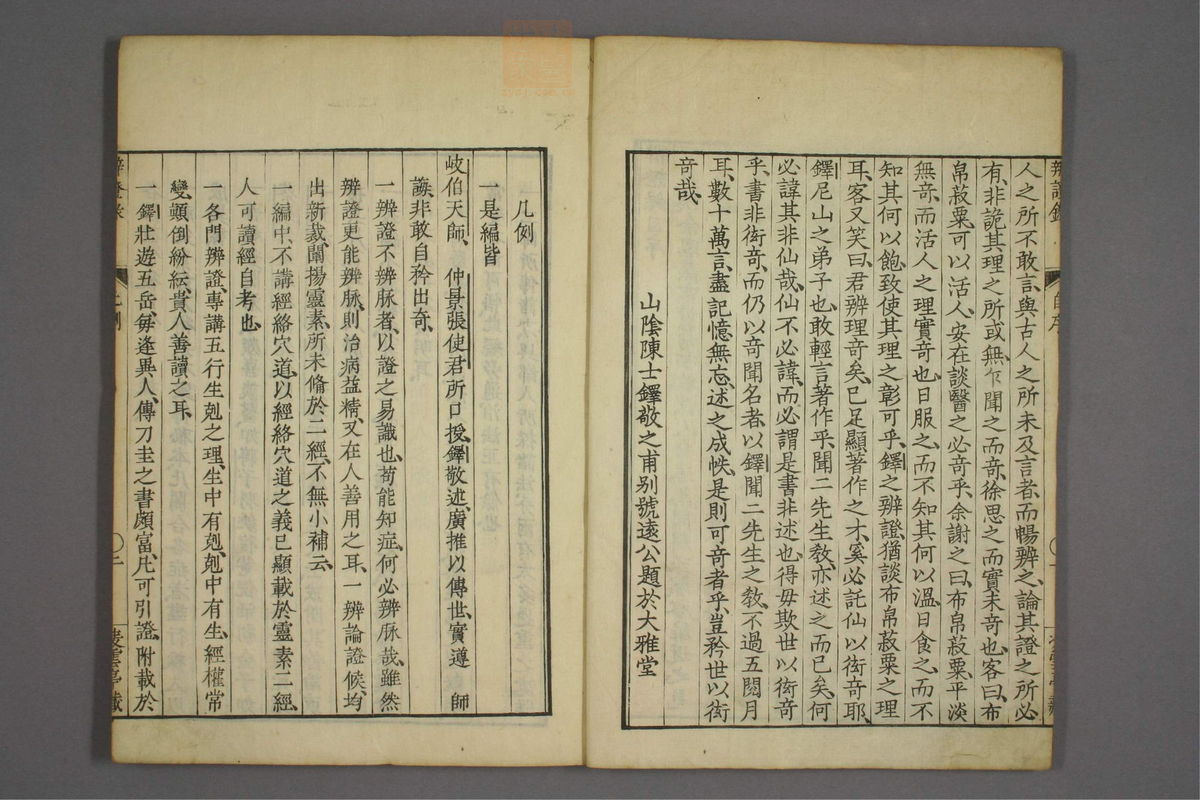 人之所不敢言與古人之所未及言者而暢辨之論其證之所必
有非詭其理之所或無乍聞之而竒徐思之而實未竒也客曰布
帛菽粟可以活人安在談醫之必竒乎余謝之曰布帛菽粟平淡
無竒而活人之理實竒也日服之而不知其何以溫日食之而不
知其何以飽致使其理之彰可乎鐸之辨證猶談布帛菽粟之理
耳客又笑曰君辨理竒矣已足顯著作之才奚必託仙以衒竒耶
鐸尼山之弟子也敢輕言著作乎聞二先生敎亦述之而已矣何
必諱其非仙哉仙不必諱而必謂是書非述也得毋欺世以衒竒
乎書非衒竒而仍以竒聞名者以鐸聞二先生之敎不過五閱月
耳數十萬言盡記憶無忘述之成帙是則可竒者乎豈矜世以衒
竒哉
山陰陳士鐸敬之甫别號遠公題於大雅堂
凡例
一是編皆
岐伯天師 仲景張使君所口授鐸敬述廣推以傳世實遵 師
誨非敢自矜出奇
一辨證不辨脉者以證之易識也苟能知症何必辨脉哉雖然
辨證更能辨脉則治病益精又在人善用之耳一辨論證候均
出新裁闡揚靈素所未備於二經不無小補云
一編中不講經絡穴道以經絡穴道之義已顯載於靈素二經
人可讀經自考也
一各門辨證專講五行生剋之理生中有剋剋中有生經權常
變顛倒紛紜貴人善讀之耳
一鐸壯遊五岳每逢異人傳刀圭之書頗富凡可引證附載於